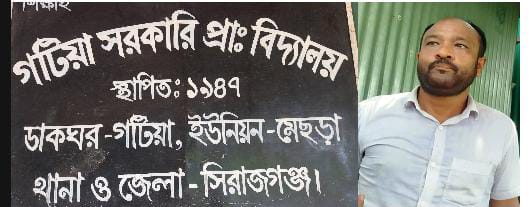 গটিয়া সরকারি প্রাঃ বিদ্যালয়
স্থাপিত: ১৯৪৭
ডাকঘর-গটিয়া, ইউনিয়ন-মেছড়া
থানা ও জেলা-সিরাজগঞ্জ।